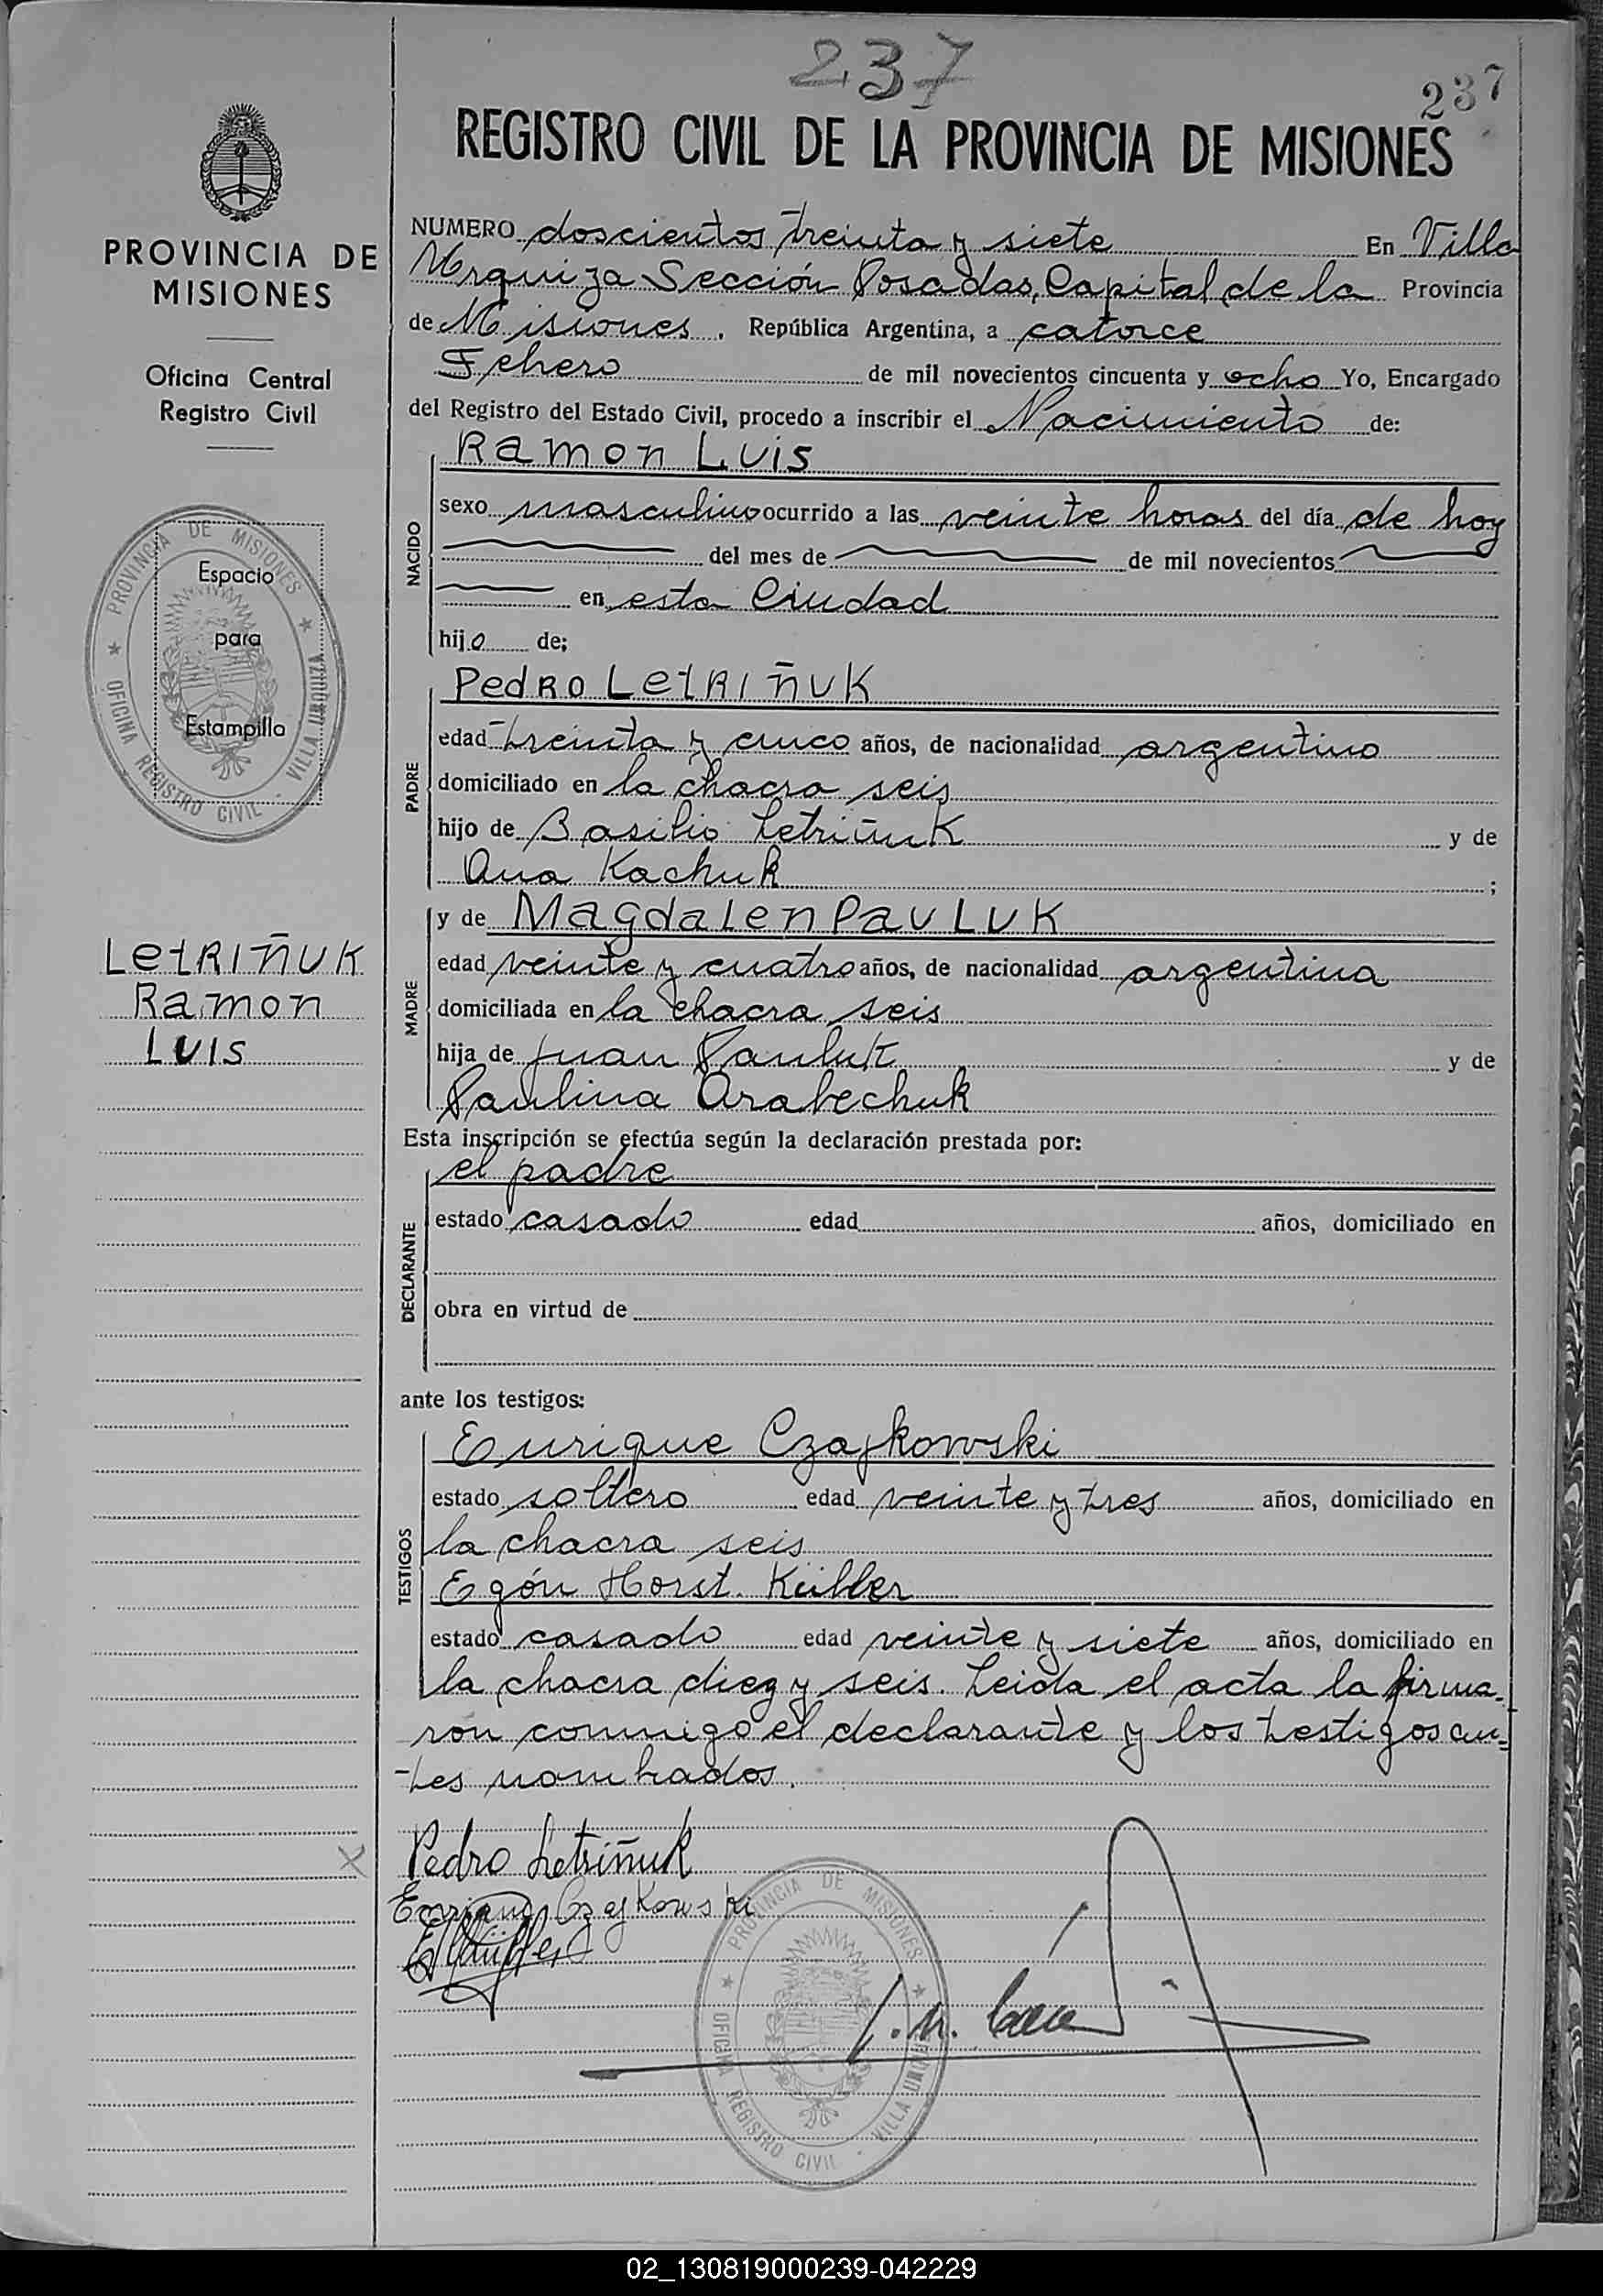 237
237
REGISTRO CIVIL DE LA PROVINCIA DE MISIONES
PROVINCIA DE
MISIONES
Oficina Central
Registro Civil
PROVINCIA DE MISIONES
OFICINA REGISTRO CIVIL - VILLA URQUIZA
Espacio
para
Estampilla
LetRIÑUK
Ramon
LUIS
NUMERO doscientos treinta y siete En Villa
Urquiza Sección Posadas, Capital de la Provincia
de Misiones. República Argentina, a catorce
Febrero de mil novecientos cincuenta y ocho Yo, Encargado
del Registro del Estado Civil, procedo a inscribir el Nacimiento de:
Ramon Luis
NACIDO
sexo masculino ocurrido a las veinte horas del día de hoy
del mes de de mil novecientos
en esta Ciudad
hijo de;
Pedro LetRIÑUK
PADRE
edad treinta y cinco años, de nacionalidad argentino
domiciliado en la chacra seis
hijo de Basilio Letriñuk y de
Ana Kachuk ;
y de Magdalen PauLUK
MADRE
edad veinte y cuatro años, de nacionalidad argentina
domiciliada en la chacra seis
hija de Juan Pauluk y de
Paulina Arabechuk
Esta inscripción se efectúa según la declaración prestada por:
el padre
DECLARANTE
estado casado edad años, domiciliado en
obra en virtud de
ante los testigos:
TESTIGOS
Enrique Czajkowski
estado soltero edad veinte y tres años, domiciliado en
la chacra seis
Egón Horst. Kübler
estado casado edad veinte y siete años, domiciliado en
la chacra diez y seis. Leida el acta la firma-
ron conmigo el declarante y los testigos an-
tes nombrados.
Pedro Letriñuk
Enrique Czajkowski
PROVINCIA DE MISIONES
OFICINA REGISTRO CIVIL - VILLA URQUIZA
02_130819000239-042229